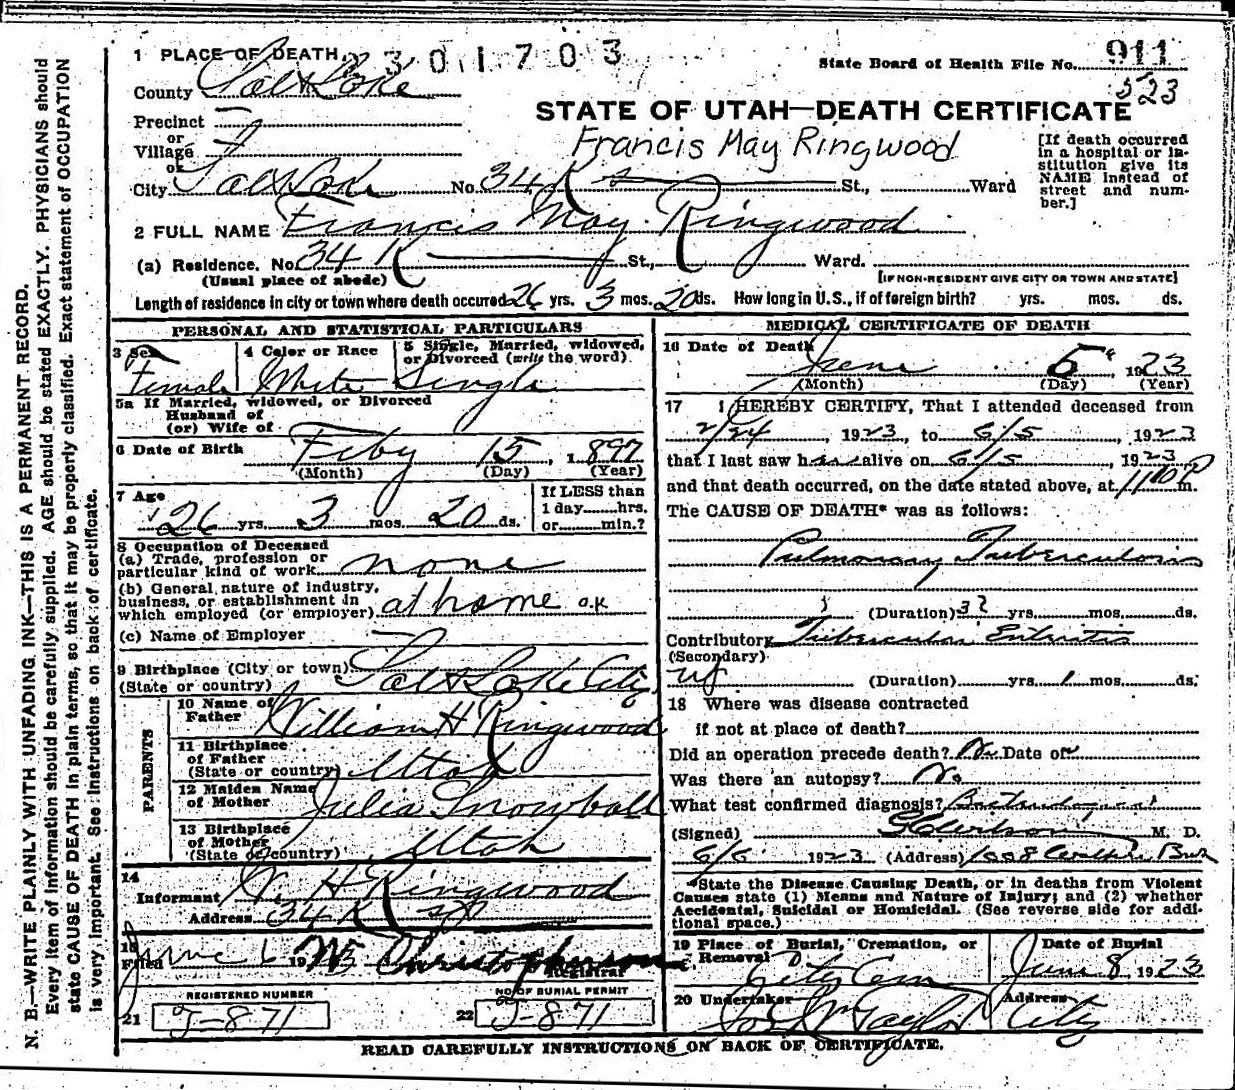 1 PLACE OF DEATH 2301703
State Board of Health File No. 911
523
County Salt Lake
STATE OF UTAH—DEATH CERTIFICATE
Precinct
or
Village
or
City Salt Lake No. 34 K St., Ward
Francis May Ringwood
[If death occurred in a hospital or institution give its NAME instead of street and number.]
2 FULL NAME Francis May Ringwood
(a) Residence. No. 34 K St., Ward.
(Usual place of abode) [IF NON-RESIDENT GIVE CITY OR TOWN AND STATE]
Length of residence in city or town where death occured 26 yrs. 3 mos. 20 ds. How long in U.S., if of foreign birth? yrs. mos. ds.
PERSONAL AND STATISTICAL PARTICULARS
3 Sex Female
4 Color or Race White
5 Single, Married, widowed, or Divorced (write the word). Single
5a If Married, widowed, or Divorced
Husband of
(or) Wife of
6 Date of Birth Feby 15, 1897
(Month) (Day) (Year)
7 Age 26 yrs. 3 mos. 20 ds.
If LESS than
1 day hrs.
or min.?
8 Occupation of Deceased
(a) Trade, profession or
particular kind of work none
(b) General nature of industry,
business, or establishment in
which employed (or employer) at home O.K
(c) Name of Employer
9 Birthplace (City or town) Salt Lake City
(State or country)
PARENTS
10 Name of Father William H Ringwood
11 Birthplace of Father (State or country) Utah
12 Maiden Name of Mother Julia Snowball
13 Birthplace of Mother (State or country) Utah
14
Informant W H Ringwood
Address 34 K St
15
Filed June 6 1923 Christopherson
Registrar
REGISTERED NUMBER
21 J-871
NO OF BURIAL PERMIT
22 J-871
MEDICAL CERTIFICATE OF DEATH
16 Date of Death June 5, 1923
(Month) (Day) (Year)
17 I HEREBY CERTIFY, That I attended deceased from
2/24, 1923, to 6/5, 1923
that I last saw her alive on 6/5, 1923
and that death occurred, on the date stated above, at 1100 P m.
The CAUSE OF DEATH* was as follows:
Pulmonary Tuberculosis
(Duration) 3? yrs. mos. ds.
Contributory Tubercular Enteritis
(Secondary)
(Duration) yrs. 1 mos. ds.
18 Where was disease contracted
if not at place of death?
Did an operation precede death? No Date of
Was there an autopsy? No
What test confirmed diagnosis?
(Signed) M. D.
6/6 1923 (Address) 1008
*State the Disease Causing Death, or in deaths from Violent
Causes state (1) Means and Nature of Injury; and (2) whether
Accidental, Suicidal or Homicidal. (See reverse side for additional space.)
19 Place of Burial, Cremation, or Removal City Cem
Date of Burial June 8 1923
20 Undertaker Jos Wm Taylor
Address City
READ CAREFULLY INSTRUCTIONS ON BACK OF CERTIFICATE.
N. B.—WRITE PLAINLY WITH UNFADING INK—THIS IS A PERMANENT RECORD.
Every item of information should be carefully supplied. AGE should be stated EXACTLY. PHYSICIANS should
state CAUSE OF DEATH in plain terms, so that it may be properly classified. Exact statement of OCCUPATION
is very important. See instructions on back of certificate.